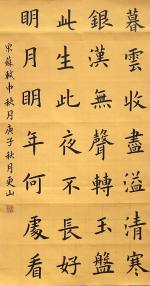 暮雲收盡溢清寒
銀漢無聲轉玉盤
此生此夜不長好
明月明年何處看
宋蘇軾中秋月庚子秋月更山